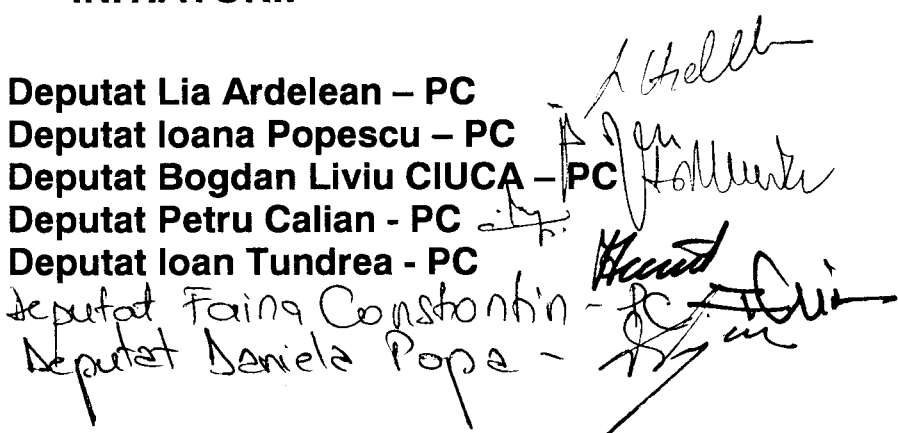 Deputat Lia Ardelean – PC
Deputat Ioana Popescu – PC
Deputat Bogdan Liviu CIUCA – PC
Deputat Petru Calian - PC
Deputat Ioan Tundrea - PC
Deputat Faina Constantin - PC
Deputat Daniela Popa -